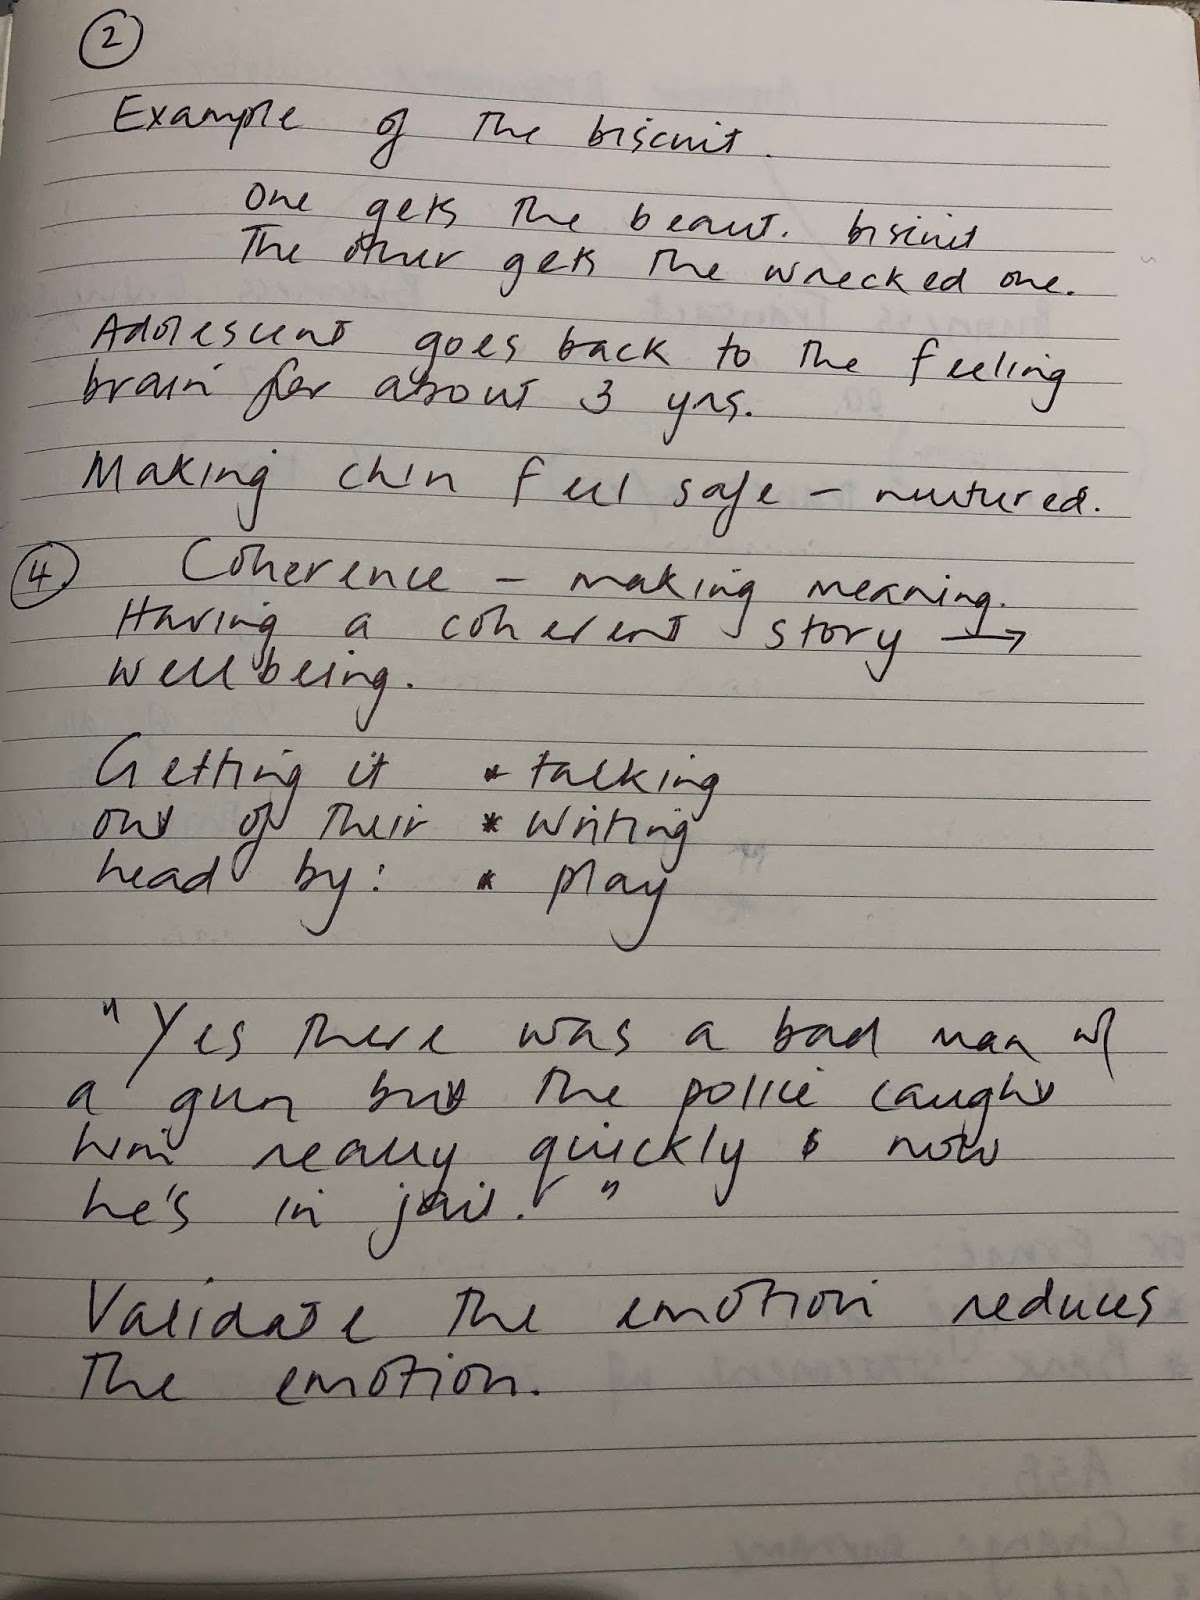 2
Example of the biscuit.
One gets the beaut. biscuit
The other gets the wrecked one.
Adolescent goes back to the feeling
brain for about 3 yrs.
Making chln feel safe - nurtured.
4 Coherence - making meaning.
Having a coherent story →
wellbeing.
Getting it * talking
out of their * writing
head by: * play
"Yes there was a bad man w/
a gun but the police caught
him really quickly & now
he's in jail."
Validate the emotion reduces
the emotion.